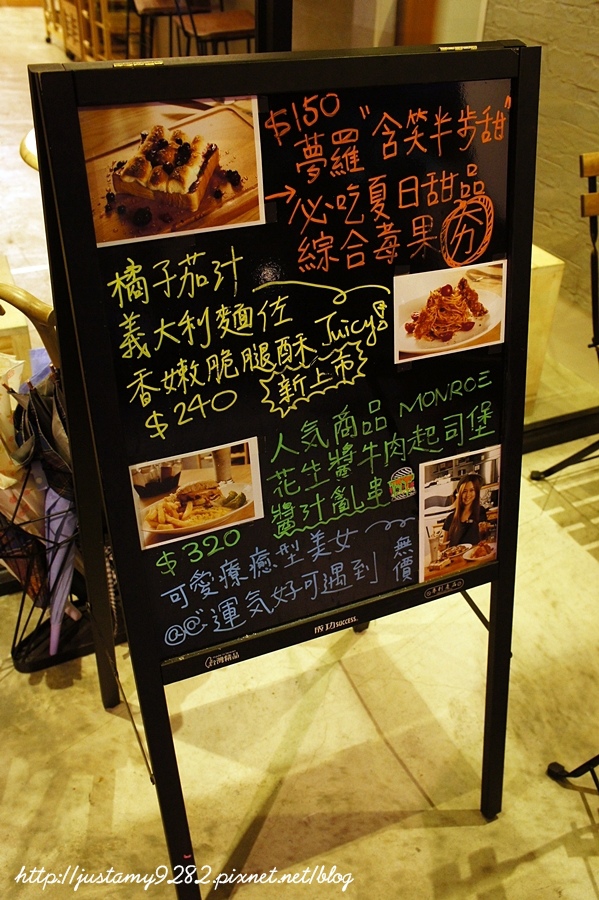 $150
夢羅"含笑半步甜"
→必吃夏日甜品
綜合莓果 夯
橘子茄汁
義大利麵佐
香嫩脆腿酥 Juicy!
$240 新上市
人気商品 MONROE
花生醬牛肉起司堡
醬汁亂串
$320
可愛療癒型美女~
@@"運気好可遇到 無價
台灣精品
成功 success
http://justamy9282.pixnet.net/blog